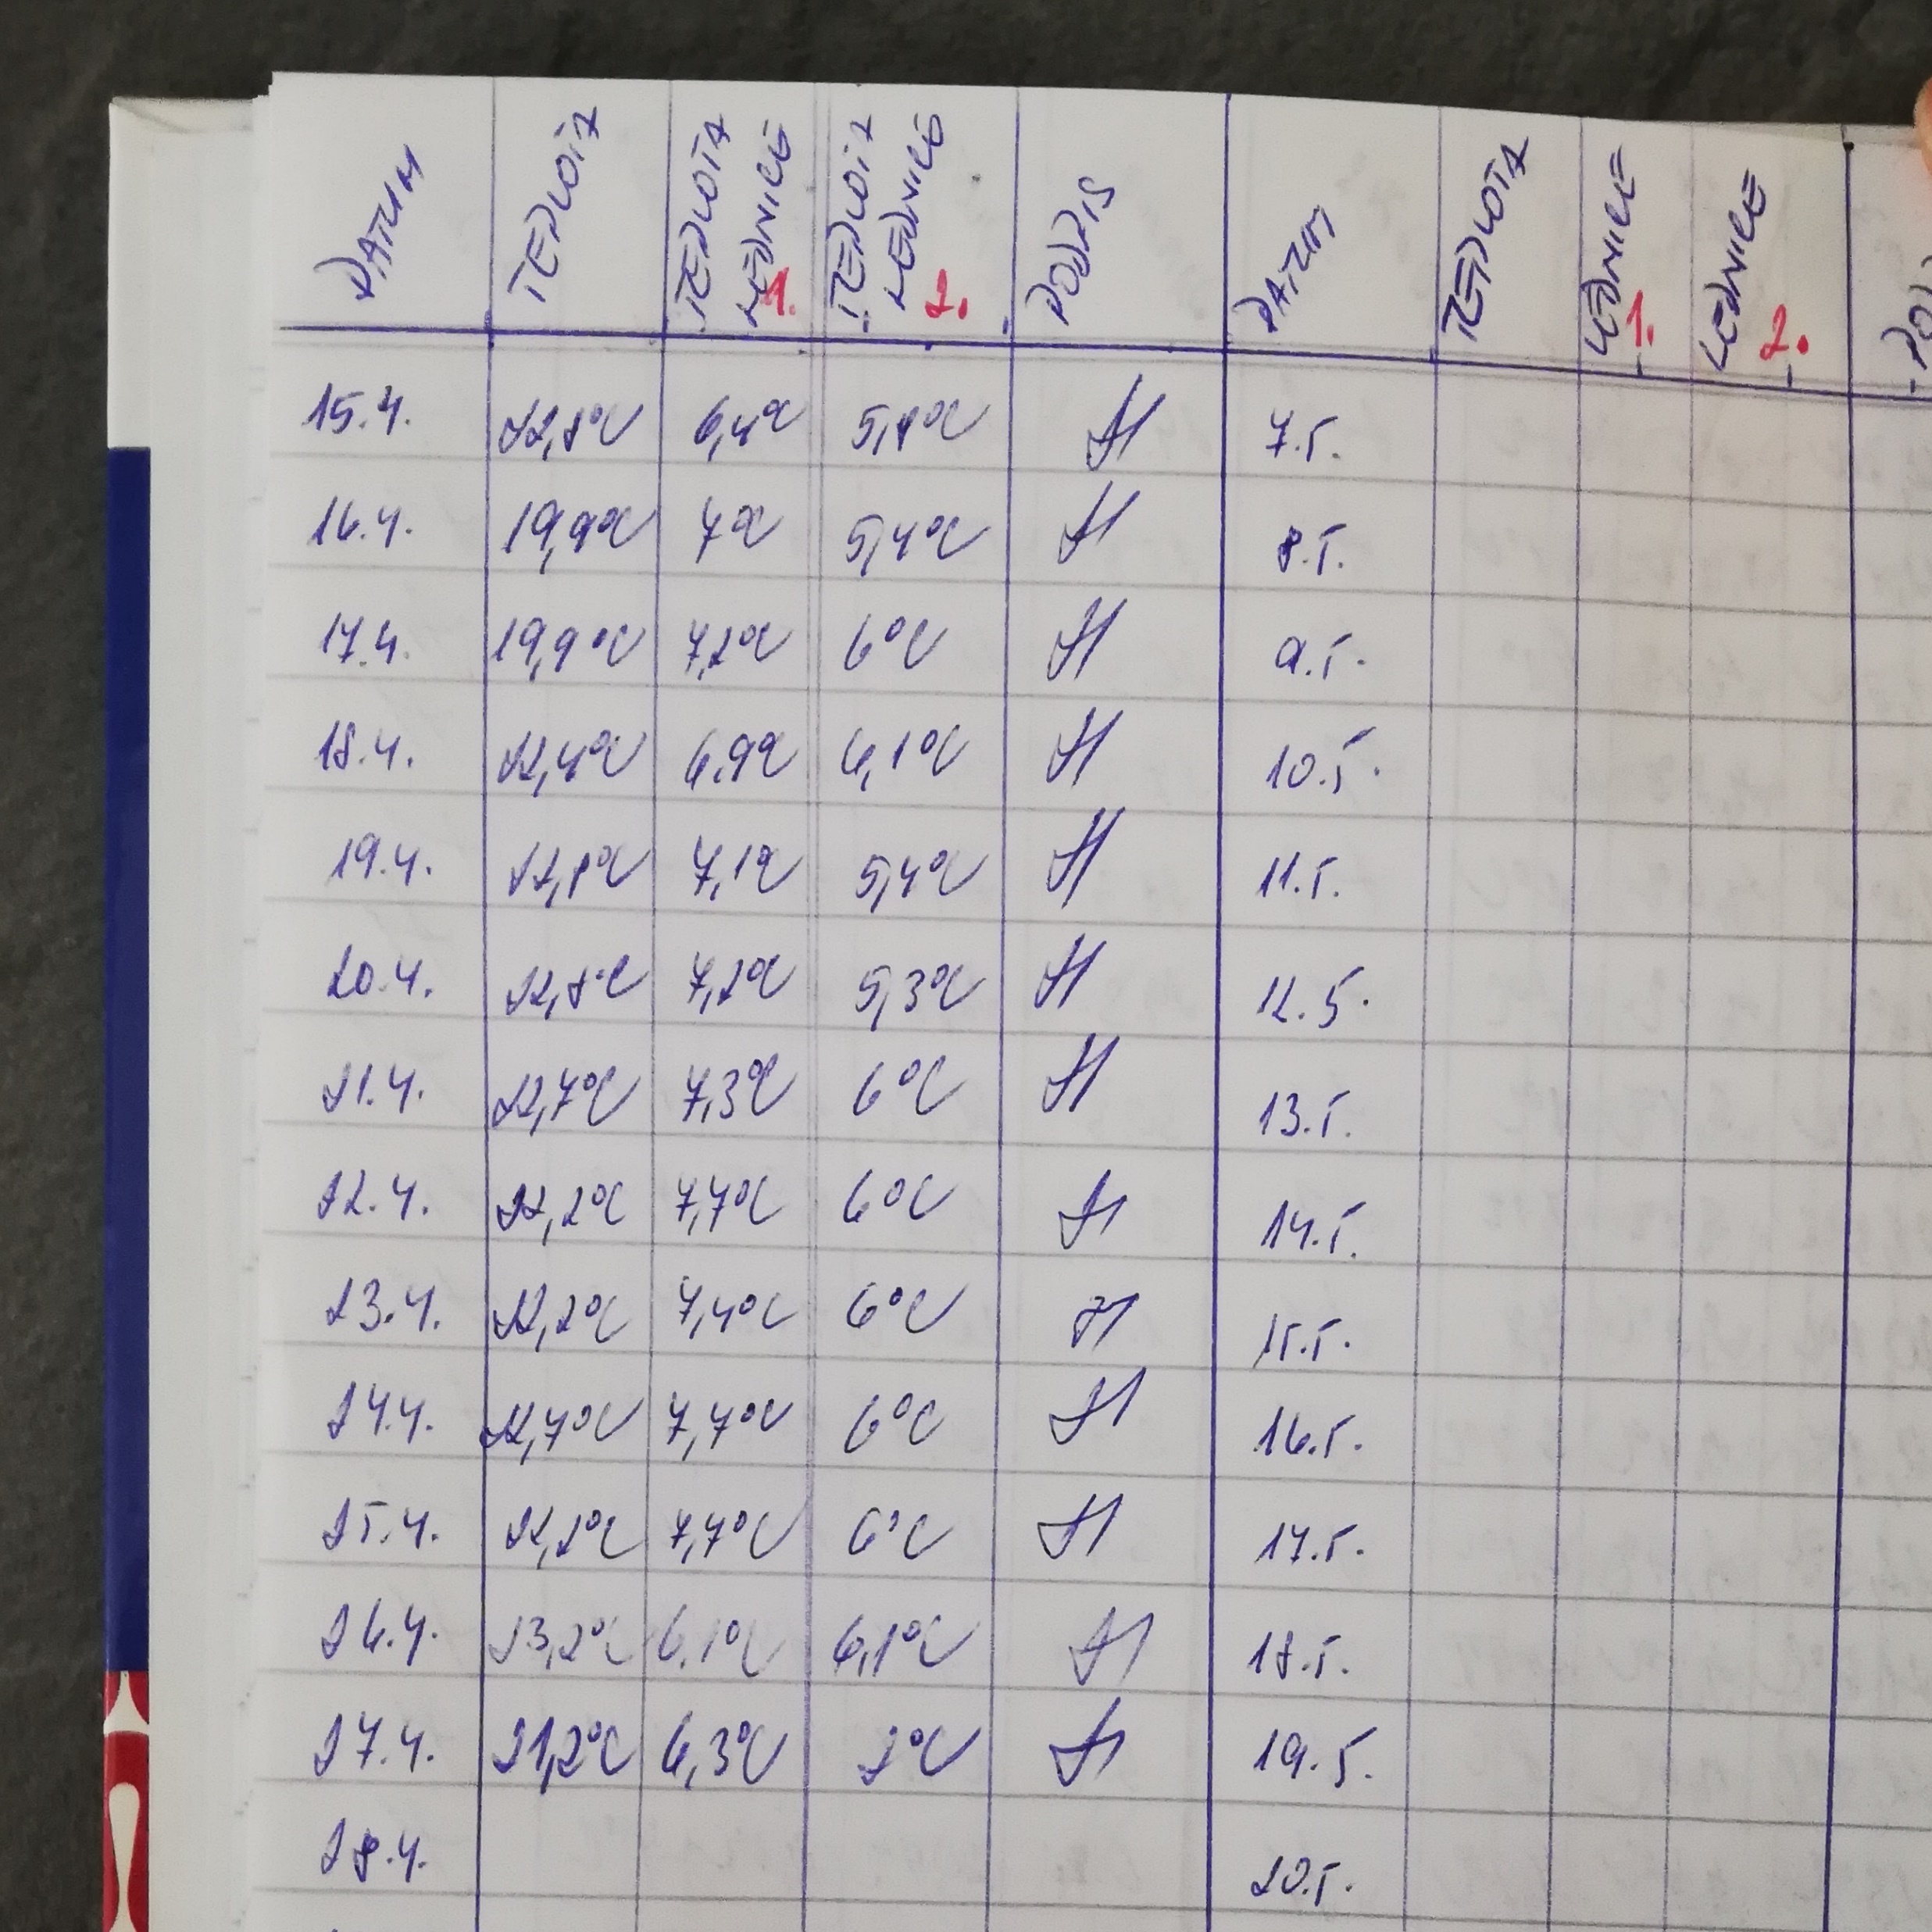 DATUM TEPLOTA TEPLOTA LEDNICE 1. TEPLOTA LEDNICE 2. PODPIS DATUM TEPLOTA LEDNICE 1. LEDNICE 2.
15.4. 22,8°C 6,4°C 5,8°C 7.5.
16.4. 19,9°C 7°C 5,4°C 8.5.
17.4. 19,9°C 7,2°C 6°C 9.5.
18.4. 22,4°C 6,9°C 6,1°C 10.5.
19.4. 22,8°C 7,1°C 5,4°C 11.5.
20.4. 22,8°C 7,2°C 5,3°C 12.5.
21.4. 22,7°C 7,3°C 6°C 13.5.
22.4. 22,2°C 7,7°C 6°C 14.5.
23.4. 22,2°C 7,4°C 6°C 15.5.
24.4. 22,7°C 7,7°C 6°C 16.5.
25.4. 22,2°C 7,7°C 6°C 17.5.
26.4. 23,2°C 6,1°C 6,1°C 18.5.
27.4. 21,2°C 6,3°C 19.5.
28.4. 20.5.